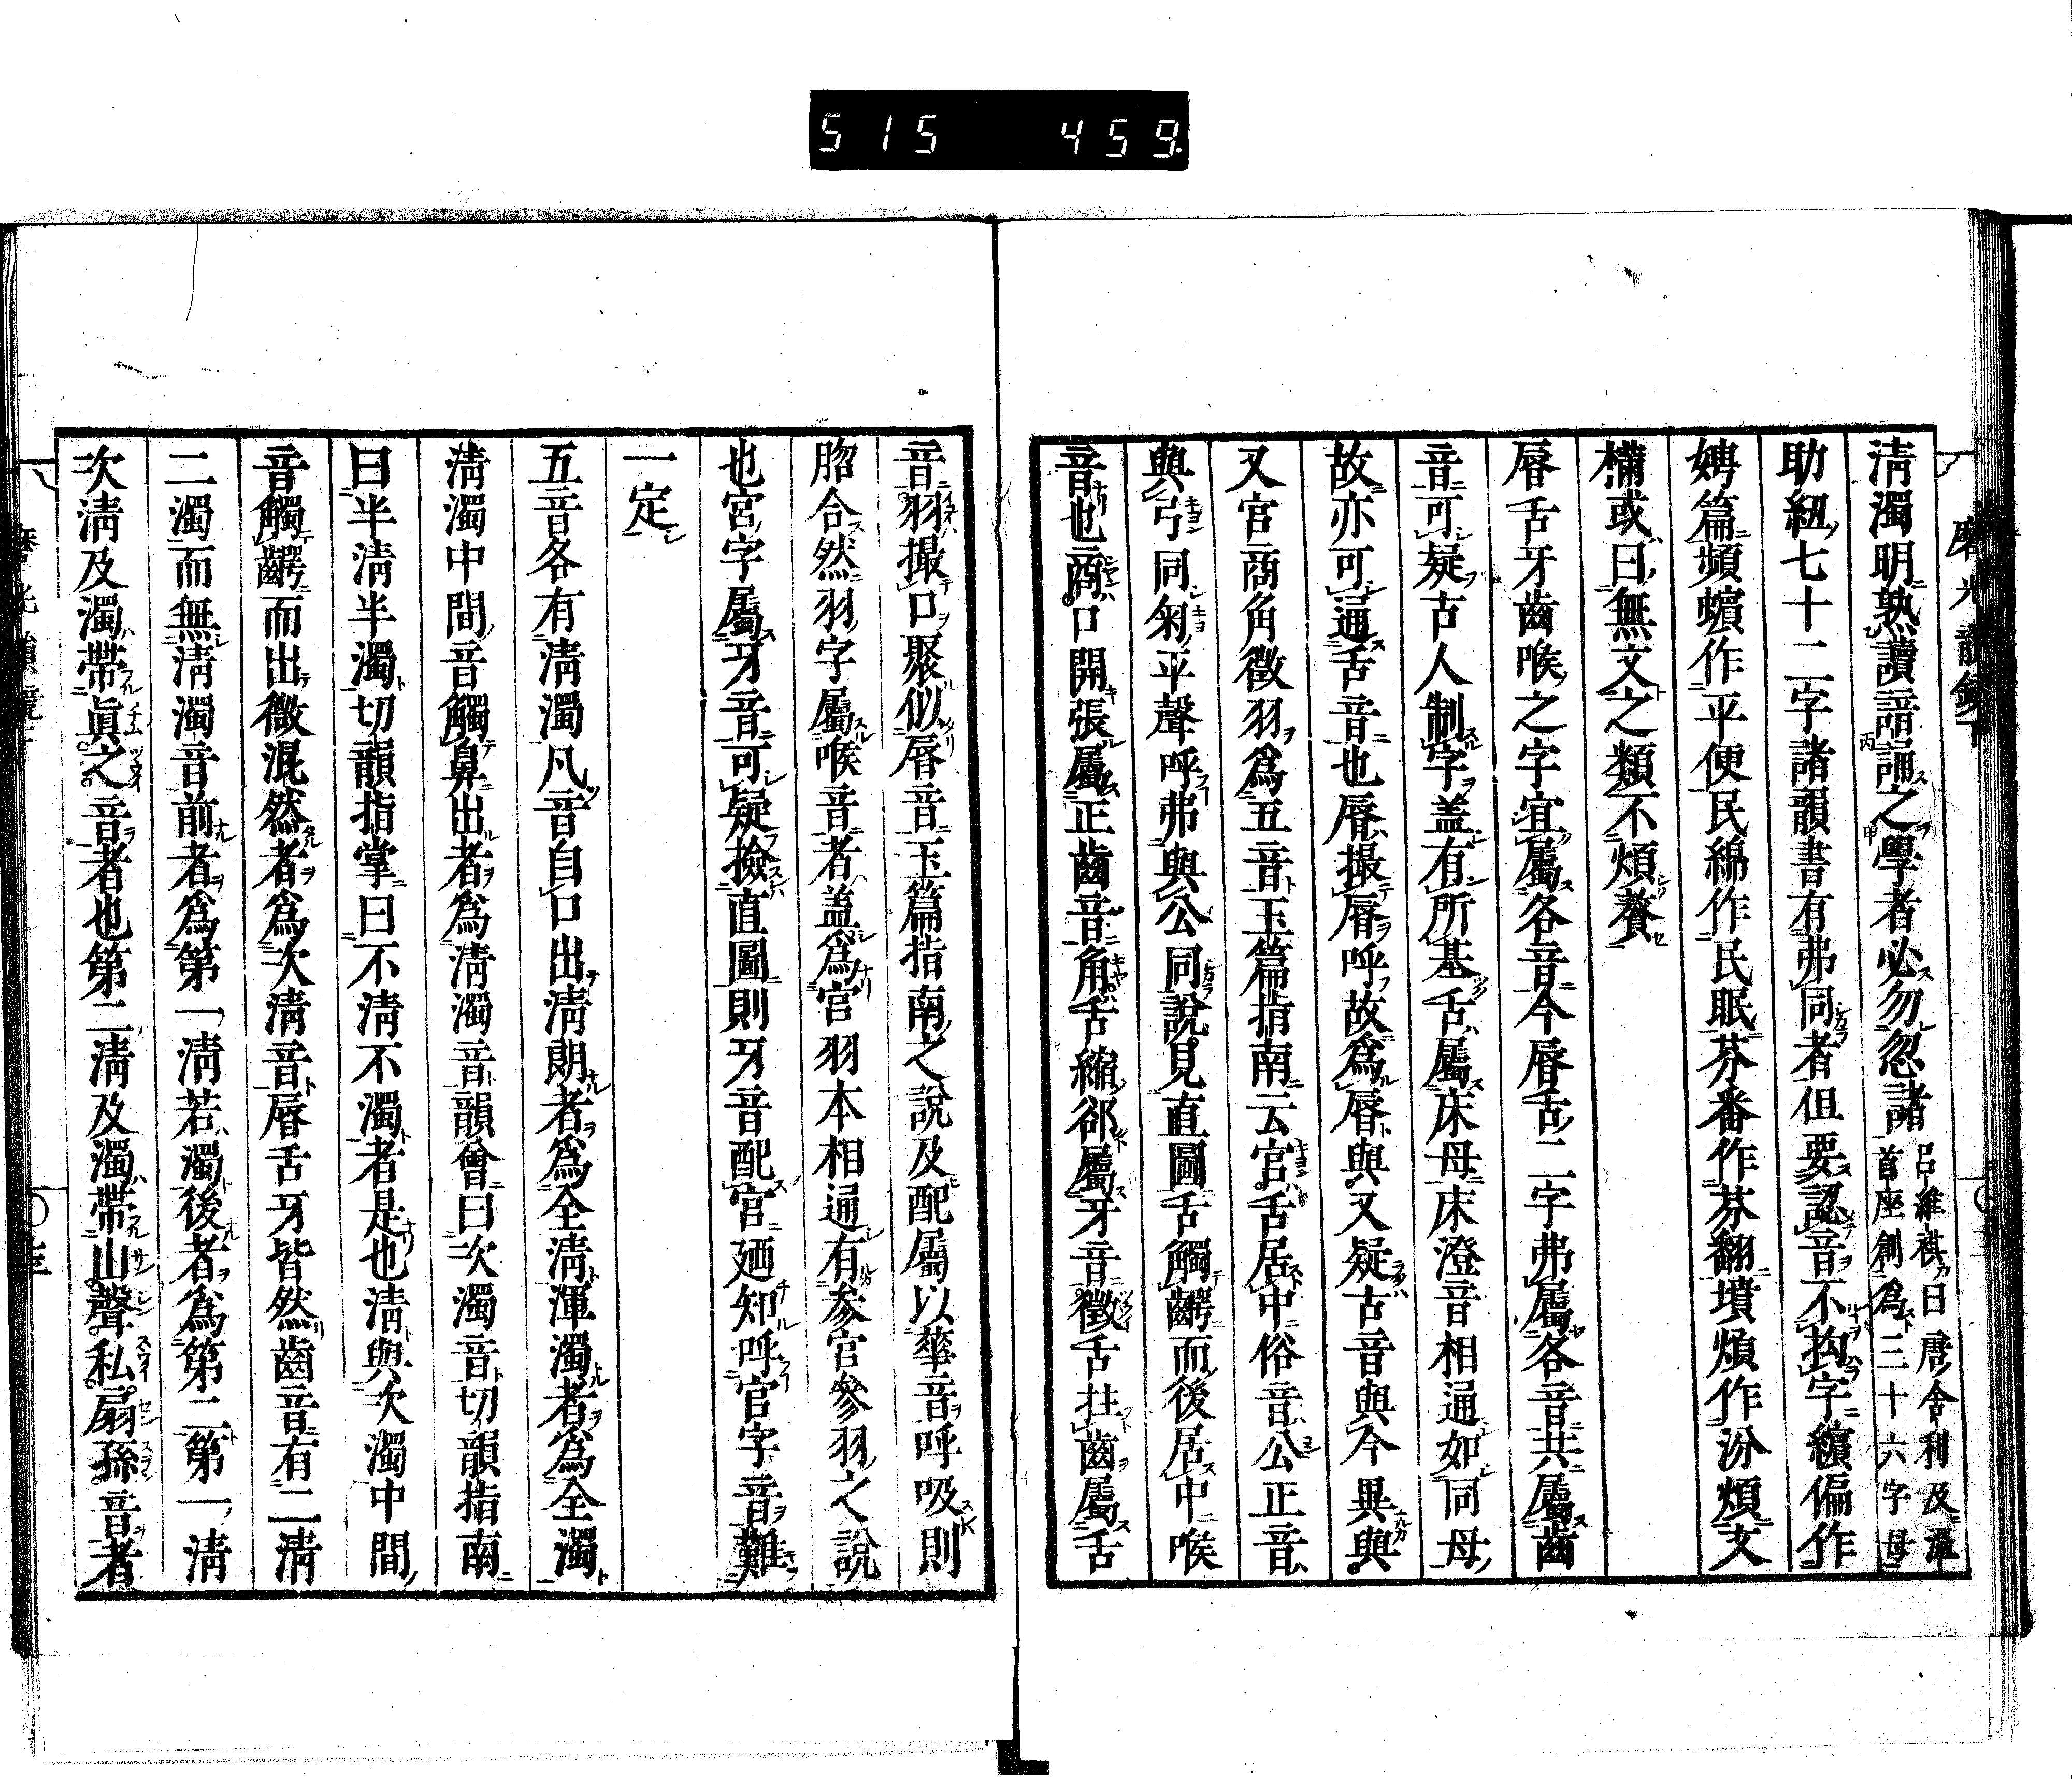 515 459
清濁明熟讀諳誦之學者必勿忽諸
呂維祺曰唐舍利及溫
首座創爲三十六字母
助紐七十二字諸韻書有弗同者但要認音不拘字繽偏作
娉篇頻蠙作平便民綿作民眠芬番作芬翻墳煩作汾煩文
樠或曰無文之類不煩贅
唇舌牙齒喉之字宜屬各音今唇舌二字弗屬各音共屬齒
音可疑古人制字盖有所基舌屬床母床澄音相通如同母
故亦可通舌音也唇撮唇呼故爲唇與又疑古音與今異與
又宮商角徵羽爲五音玉篇指南云宮舌居中俗音公正音
與弓同匊平聲呼弗與公同說見直圖舌觸齶而後居中喉
音也商口開張屬正齒音角舌縮郤屬牙音徵舌拄齒屬舌
音羽撮口聚似唇音玉篇指南之說及配屬以華音呼吸則
脗合然羽字屬喉音者盖爲宮羽本相通有參宮參羽之說
也宮字屬牙音可疑撿直圖則牙音配宮廼知呼宮字音難
一定
五音各有淸濁凡音自口出淸朗者爲全淸渾濁者爲全濁
淸濁中間音觸鼻出者爲淸濁音韻會曰次濁音切韻指南
曰半淸半濁切韻指掌曰不淸不濁者是也淸與次濁中間
音觸齶而出微混然者爲次淸音唇舌牙皆然齒音有二淸
二濁而無淸濁音前者爲第一淸若濁後者爲第二第一淸
次淸及濁帶眞之音者也第二淸及濁帶山聲私扇孫音者